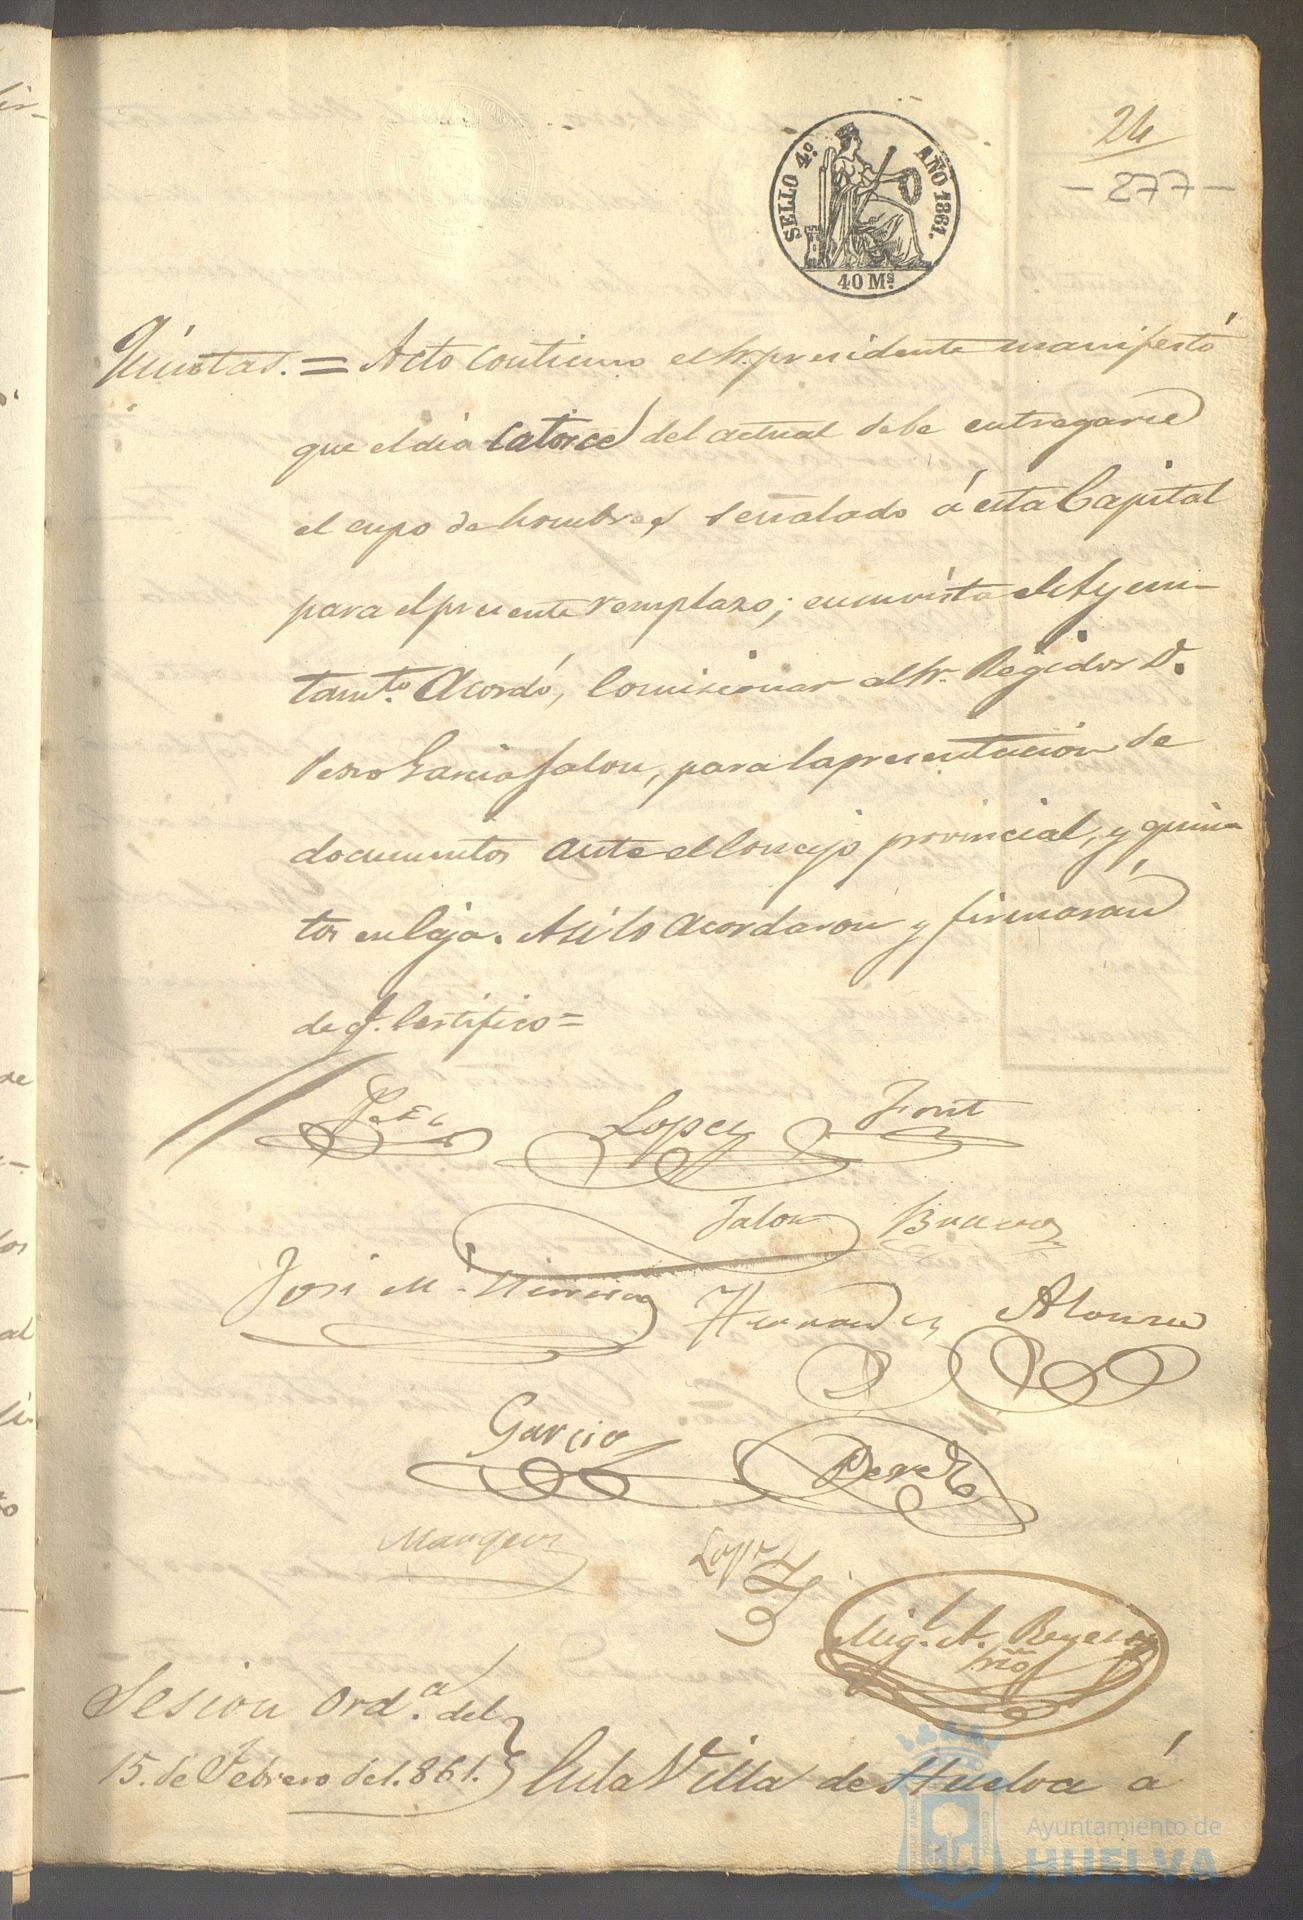 24
- 277 -
SELLO 4.º AÑO 1861.
40 Ms.
Quintas. = Acto continuo el Sr. presidente manifestó
que el dia catorce del actual debe entregarse
el cupo de hombres señalado á esta Capital
para el presente remplazo; en su vista el Ayun-
tamto. Acordó, comisionar al Sr. Regidor D.
Pedro Garcia Jalon, para la presentacion de
documentos ante el Consejo provincial, y quin-
tos en Caja. Asi lo Acordaron y firmarán
de q. Certifico =
Lopez Font
Jalon
José Ma. Hernandez Alonso
Garcia Perez
Lopez
Mig. A. Reyes
Srio
Sesion Ord.a del
15. de Febrero del. 861. } En la Villa de Huelva á
Ayuntamiento de
HUELVA